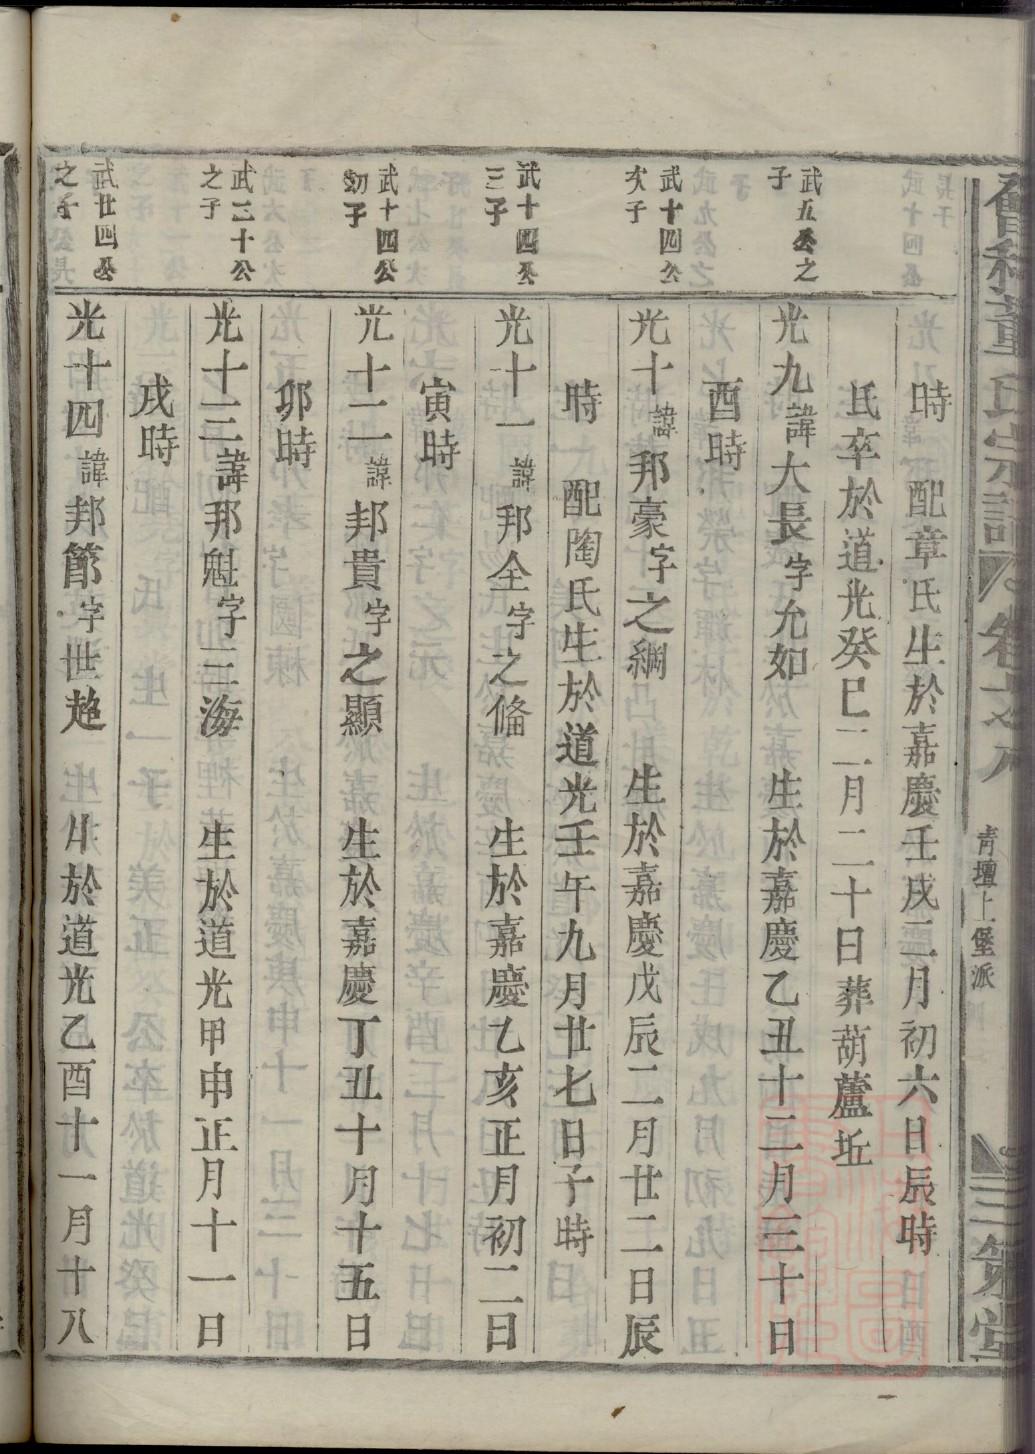 會稽董氏宗譜 卷之八 青壇上堡派 三策堂
時 配章氏生於嘉慶壬戌二月初六日辰時
氏卒於道光癸巳二月二十日葬葫蘆坵
武五公之
子
光九諱大長字允如 生於嘉慶乙丑十二月三十日
酉時
武十四公
次子
光十諱邦豪字之綱 生於嘉慶戊辰二月廿二日辰
時 配陶氏生於道光壬午九月廿七日子時
武十四公
三子
光十一諱邦全字之脩 生於嘉慶乙亥正月初二日
寅時
武十四公
幼子
光十二諱邦貴字之顯 生於嘉慶丁丑十月十五日
卯時
武二十公
之子
光十三諱邦魁字三海 生於道光甲申正月十一日
戌時
武廿四公
之子
光十四諱邦節字世趂 生於道光乙酉十一月十八